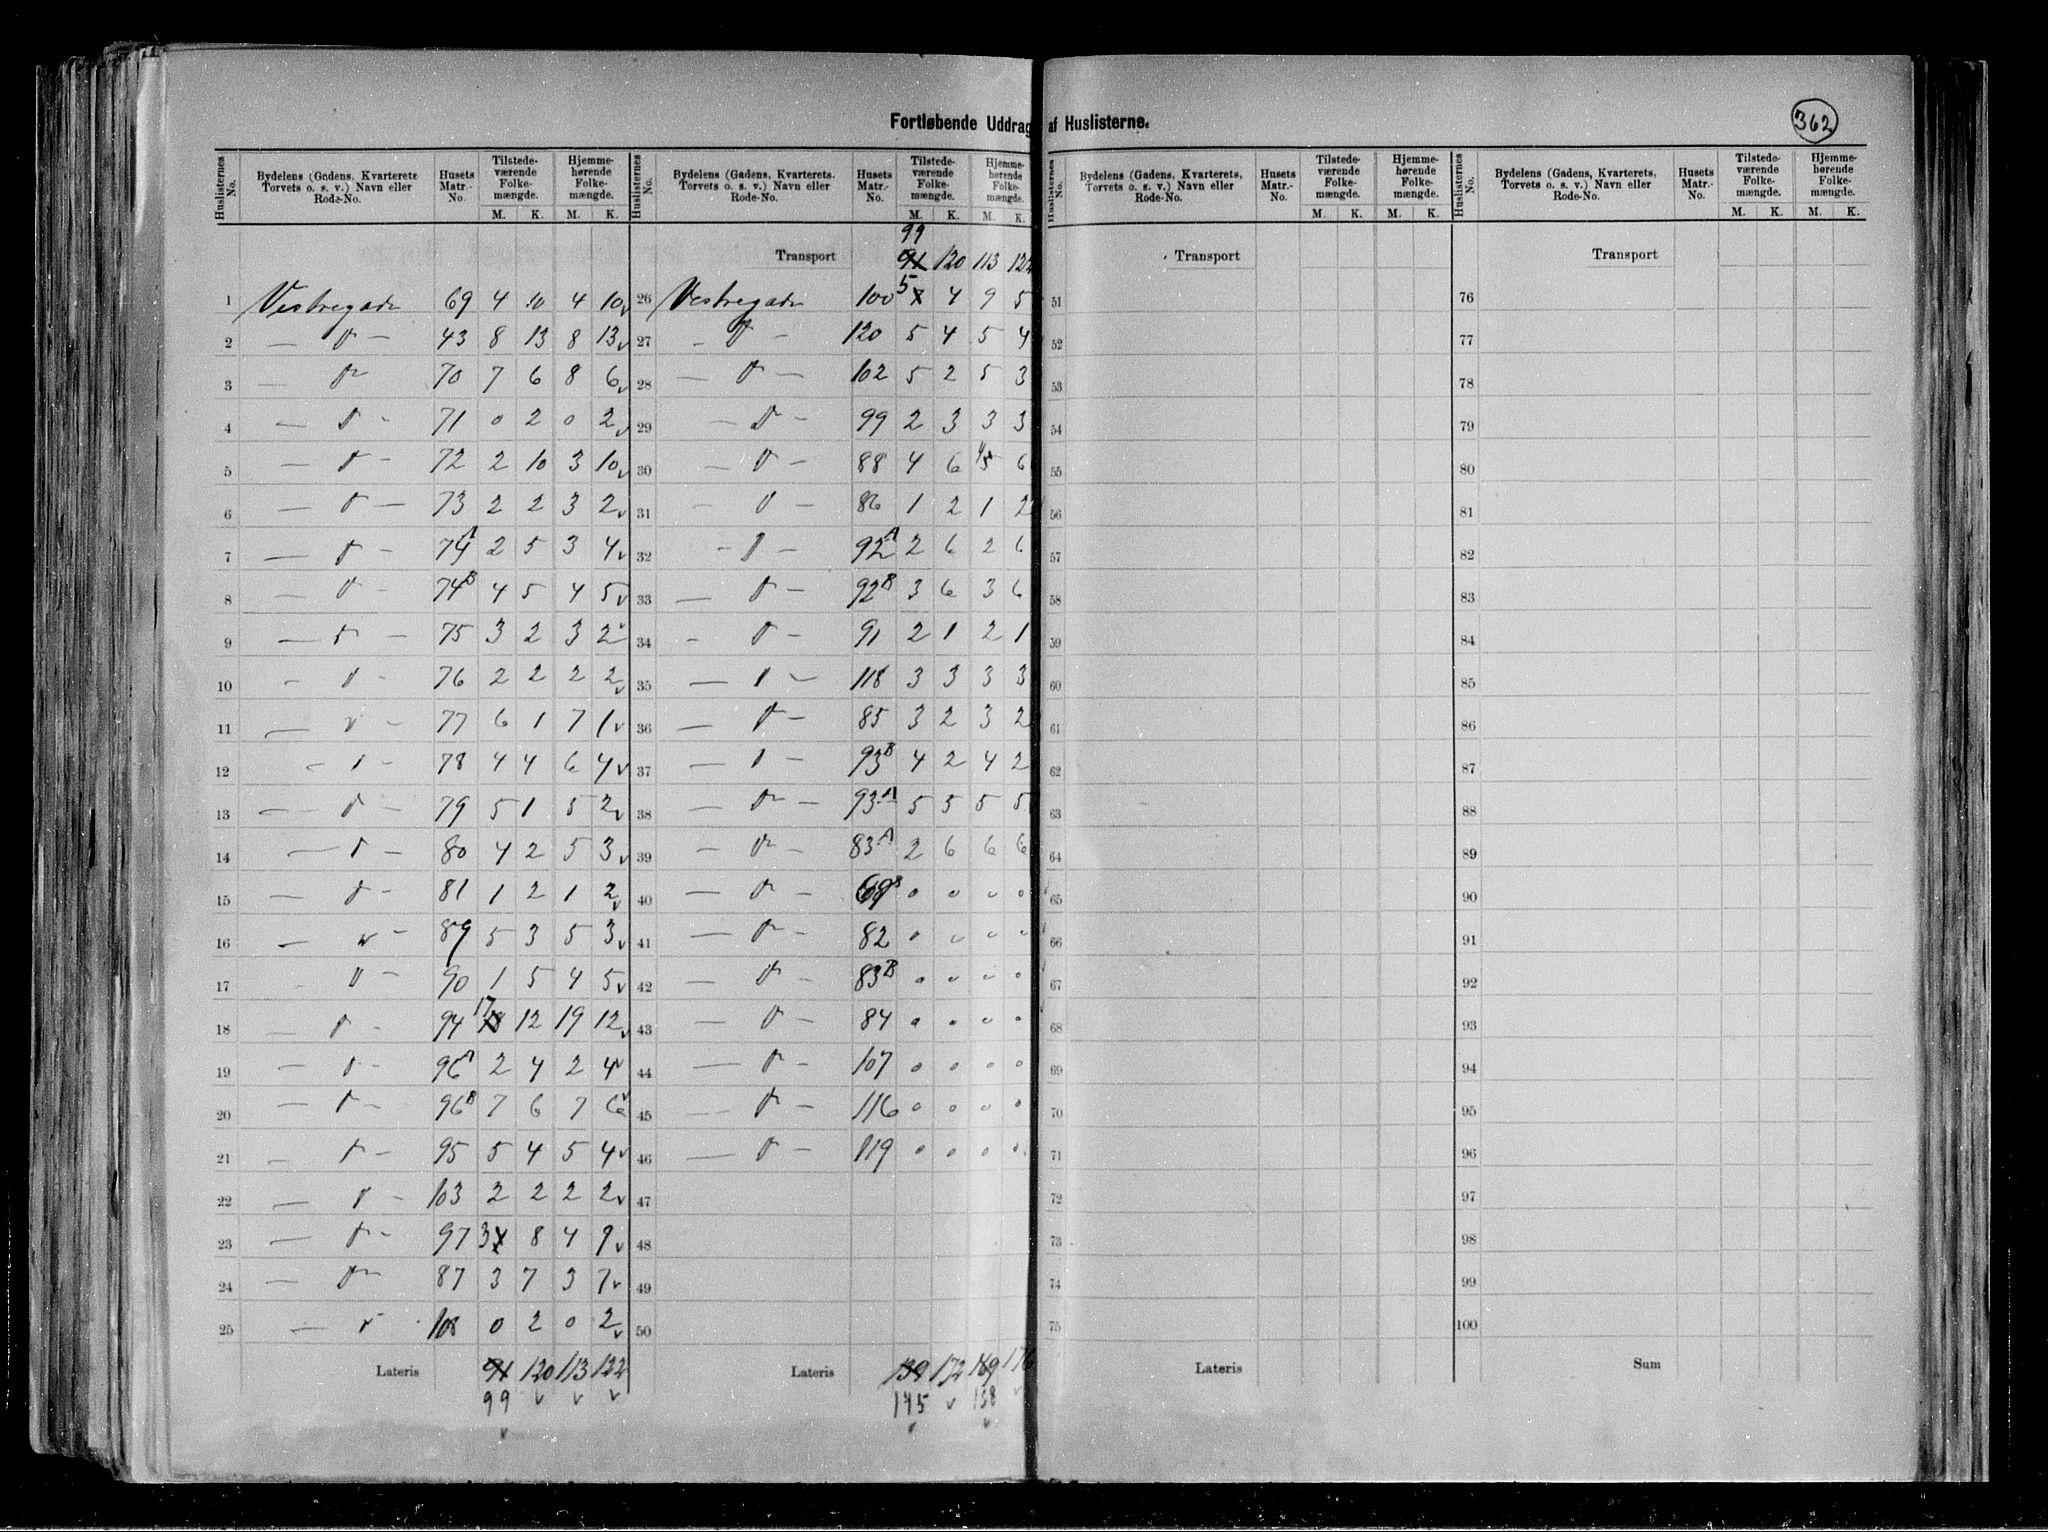 Fortløbende Uddrag af Huslisterne.
362
Huslisternes No. Bydelens (Gadens, Kvarterets, Torvets o. s. v.) Navn eller Rode-No. Husets Matr.-No. Tilstedeværende Folkemængde. M. K. Hjemmehørende Folkemængde. M. K.
1 Vestregade 69 4 10 4 10
2 — " — 43 8 13 8 13
3 — " 70 7 6 8 6
4 — " - 71 0 2 0 2
5 — " — 72 2 10 3 10
6 — " — 73 2 2 3 2
7 — " — 74A 2 5 3 4
8 — " — 74B 4 5 4 5
9 — " — 75 3 2 3 2
10 — " - 76 2 2 2 2
11 — " — 77 6 1 7 1
12 — " — 78 4 4 6 4
13 — " — 79 5 1 5 2
14 — " — 80 4 2 5 3
15 — " — 81 1 2 1 2
16 — " — 89 5 3 5 3
17 " — 90 1 5 4 5
18 — " — 94 17 18 12 19 12
19 — " — 96A 2 4 2 4
20 — " — 96B 7 6 7 6
21 — " — 95 5 4 5 4
22 — " — 103 2 2 2 2
23 — " — 97 3 8 4 9
24 — " 87 3 7 3 7
25 — " 108 0 2 0 2
Lateris 91 120 113 122
99
Huslisternes No. Bydelens (Gadens, Kvarterets, Torvets o. s. v.) Navn eller Rode-No. Husets Matr.-No. Tilstedeværende Folkemængde. M. K. Hjemmehørende Folkemængde. M. K.
99
Transport 91 120 113 122
26 Vestregade 100 5 4 9 5
27 — " — 120 5 4 5 4
28 — " — 102 5 2 5 3
29 — " — 99 2 3 3 3
30 — " — 88 4 6 4 5 6
31 — " — 86 1 2 1 2
32 — " — 92A 2 6 2 6
33 — " — 92B 3 6 3 6
34 — " — 91 2 1 2 1
35 — " — 118 3 3 3 3
36 — " — 85 3 2 3 2
37 — " — 93B 4 2 4 2
38 — " — 93A 5 5 5 5
39 — " — 83A 2 6 6 6
40 — " — 69B 0 0 0 0
41 — " — 82 0 0 0 0
42 — " — 83B 0 0 0 0
43 — " — 84 0 0 0 0
44 — " — 107 0 0 0 0
45 — " — 116 0 0 0 0
46 — " — 119 0 0 0 0
47
48
49
50
Lateris 139 172 169 176
145 158
Huslisternes No. Bydelens (Gadens, Kvarterets, Torvets o. s. v.) Navn eller Rode-No. Husets Matr.-No. Tilstedeværende Folkemængde. M. K. Hjemmehørende Folkemængde. M. K.
Transport
51
52
53
54
55
56
57
58
59
60
61
62
63
64
65
66
67
68
69
70
71
72
73
74
75
Lateris
Huslisternes No. Bydelens (Gadens, Kvarterets, Torvets o. s. v.) Navn eller Rode-No. Husets Matr.-No. Tilstedeværende Folkemængde. M. K. Hjemmehørende Folkemængde. M. K.
Transport
76
77
78
79
80
81
82
83
84
85
86
87
88
89
90
91
92
93
94
95
96
97
98
99
100
Sum